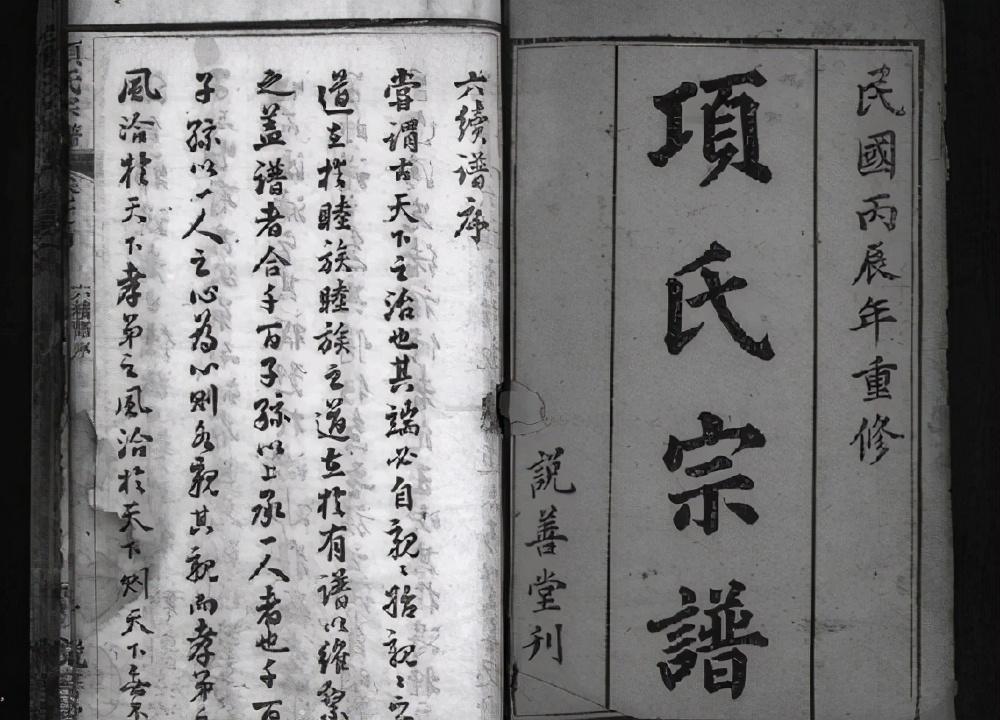 民國丙辰年重修
項氏宗譜
説善堂刊
六續譜序
嘗謂古天下之治也其端必自親〻始親〻之
道立於睦族睦族之道立於有譜以維繫
之蓋譜者合千百子孫以上承一人者也千百
子孫以一人之心為心則各親其親而孝弟之
風洽於天下孝弟之風洽於天下則天下
項氏宗譜
六續譜序